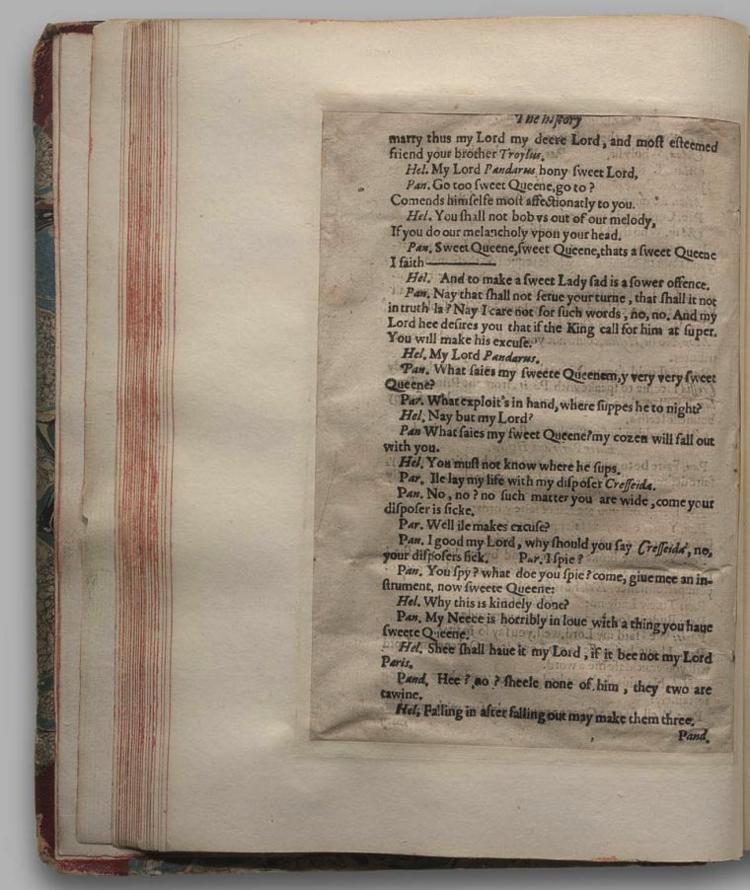 The history
marry thus my Lord my deere Lord, and most esteemed
friend your brother Troylus.
Hel. My Lord Pandarus hony sweet Lord,
Pan. Go too sweet Queene, go to?
Comends himselfe most affectionatly to you.
Hel. You shall not bob vs out of our melody,
If you do our melancholy vpon your head.
Pan. Sweet Queene, sweet Queene, thats a sweet Queene
I faith ———
Hel. And to make a sweet Lady sad is a sower offence.
Pan. Nay that shall not serue your turne, that shall it not
in truth la? Nay I care not for such words, no, no. And my
Lord hee desires you that if the King call for him at super.
You will make his excuse.
Hel. My Lord Pandarus.
Pan. What saies my sweete Queenem,y very very sweet
Queene?
Par. What exploit's in hand, where suppes he to night?
Hel. Nay but my Lord?
Pan What saies my sweet Queene? my cozen will fall out
with you.
Hel. You must not know where he sups.
Par. Ile lay my life with my disposer Cresseida.
Pan. No, no? no such matter you are wide, come your
disposer is sicke.
Par. Well ile makes excuse?
Pan. I good my Lord, why should you say Cresseida, no,
your disposers sick. Par. I spie?
Pan. You spy? what doe you spie? come, giue mee an in-
strument, now sweete Queene:
Hel. Why this is kindely done?
Pan. My Neece is horribly in loue with a thing you haue
sweete Queene.
Hel. Shee shall haue it my Lord, if it bee not my Lord
Paris.
Pand. Hee? no? sheele none of him, they two are
tawine.
Hel. Falling in after falling out may make them three.
Pand.